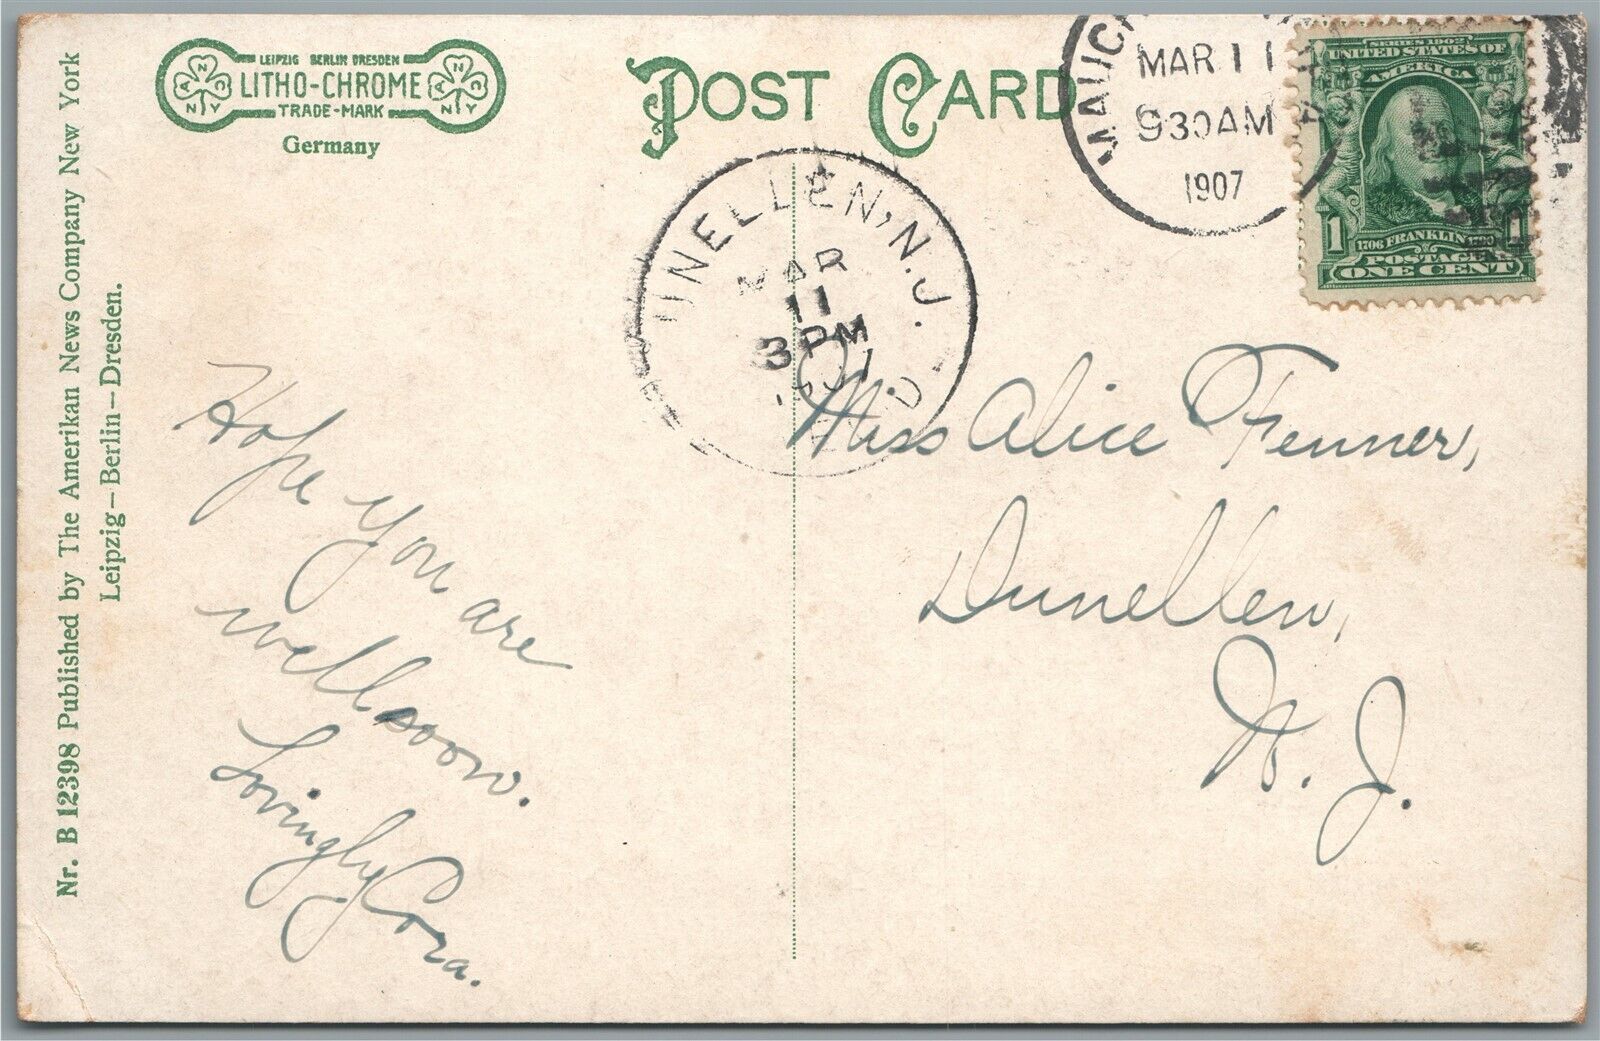 LEIPZIG BERLIN DRESDEN
LITHO-CHROME
TRADE-MARK
Germany
POST CARD
Nr. B 12398 Published by The Amerikan News Company New York
Leipzig–Berlin–Dresden.
MAUCH
MAR 11
930AM
1907
SERIES 1902
UNITED STATES OF
AMERICA
1706 FRANKLIN 1790
1 1
POSTAGE
ONE CENT
UNELLEN, N.J.
MAR
11
3 PM
Hope you are
well soon.
Lovingly
Cora.
Miss Alice Fenner,
Dunellen,
N. J.